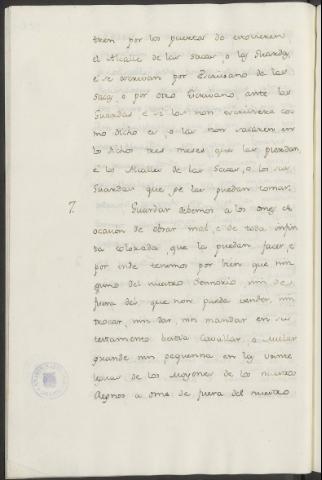 trren por los puertos do estovieren
el Alcalle de las sacas, o las Guardas,
e se escrivan por Escrivano de las
Sacas, o por otro Escrivano ante las
Guardas e si las non escrivieren co
mo dicho es, o las non sacaren en
los dichos tres meses, que las pierdan,
e los Alcalles de las Sacas, o los sus
Guardas que se las puedan tomar.
7. Guardar debemos a los omes de
ocasion de obrar mal, e de toda infin
ta colorada, que la puedan facer, e
por ende tenemos por bien que nin
guno del nuestro Sennorio, nin de
fuera del, que non pueda vender, nin
trocar, nin dar, nin mandar en su
testamento bestia Cavallar, o Mular
grande nin pequenna en las veinte
leguas de los Moyones de los nuestros
Regnos a ome de fuera del nuestro